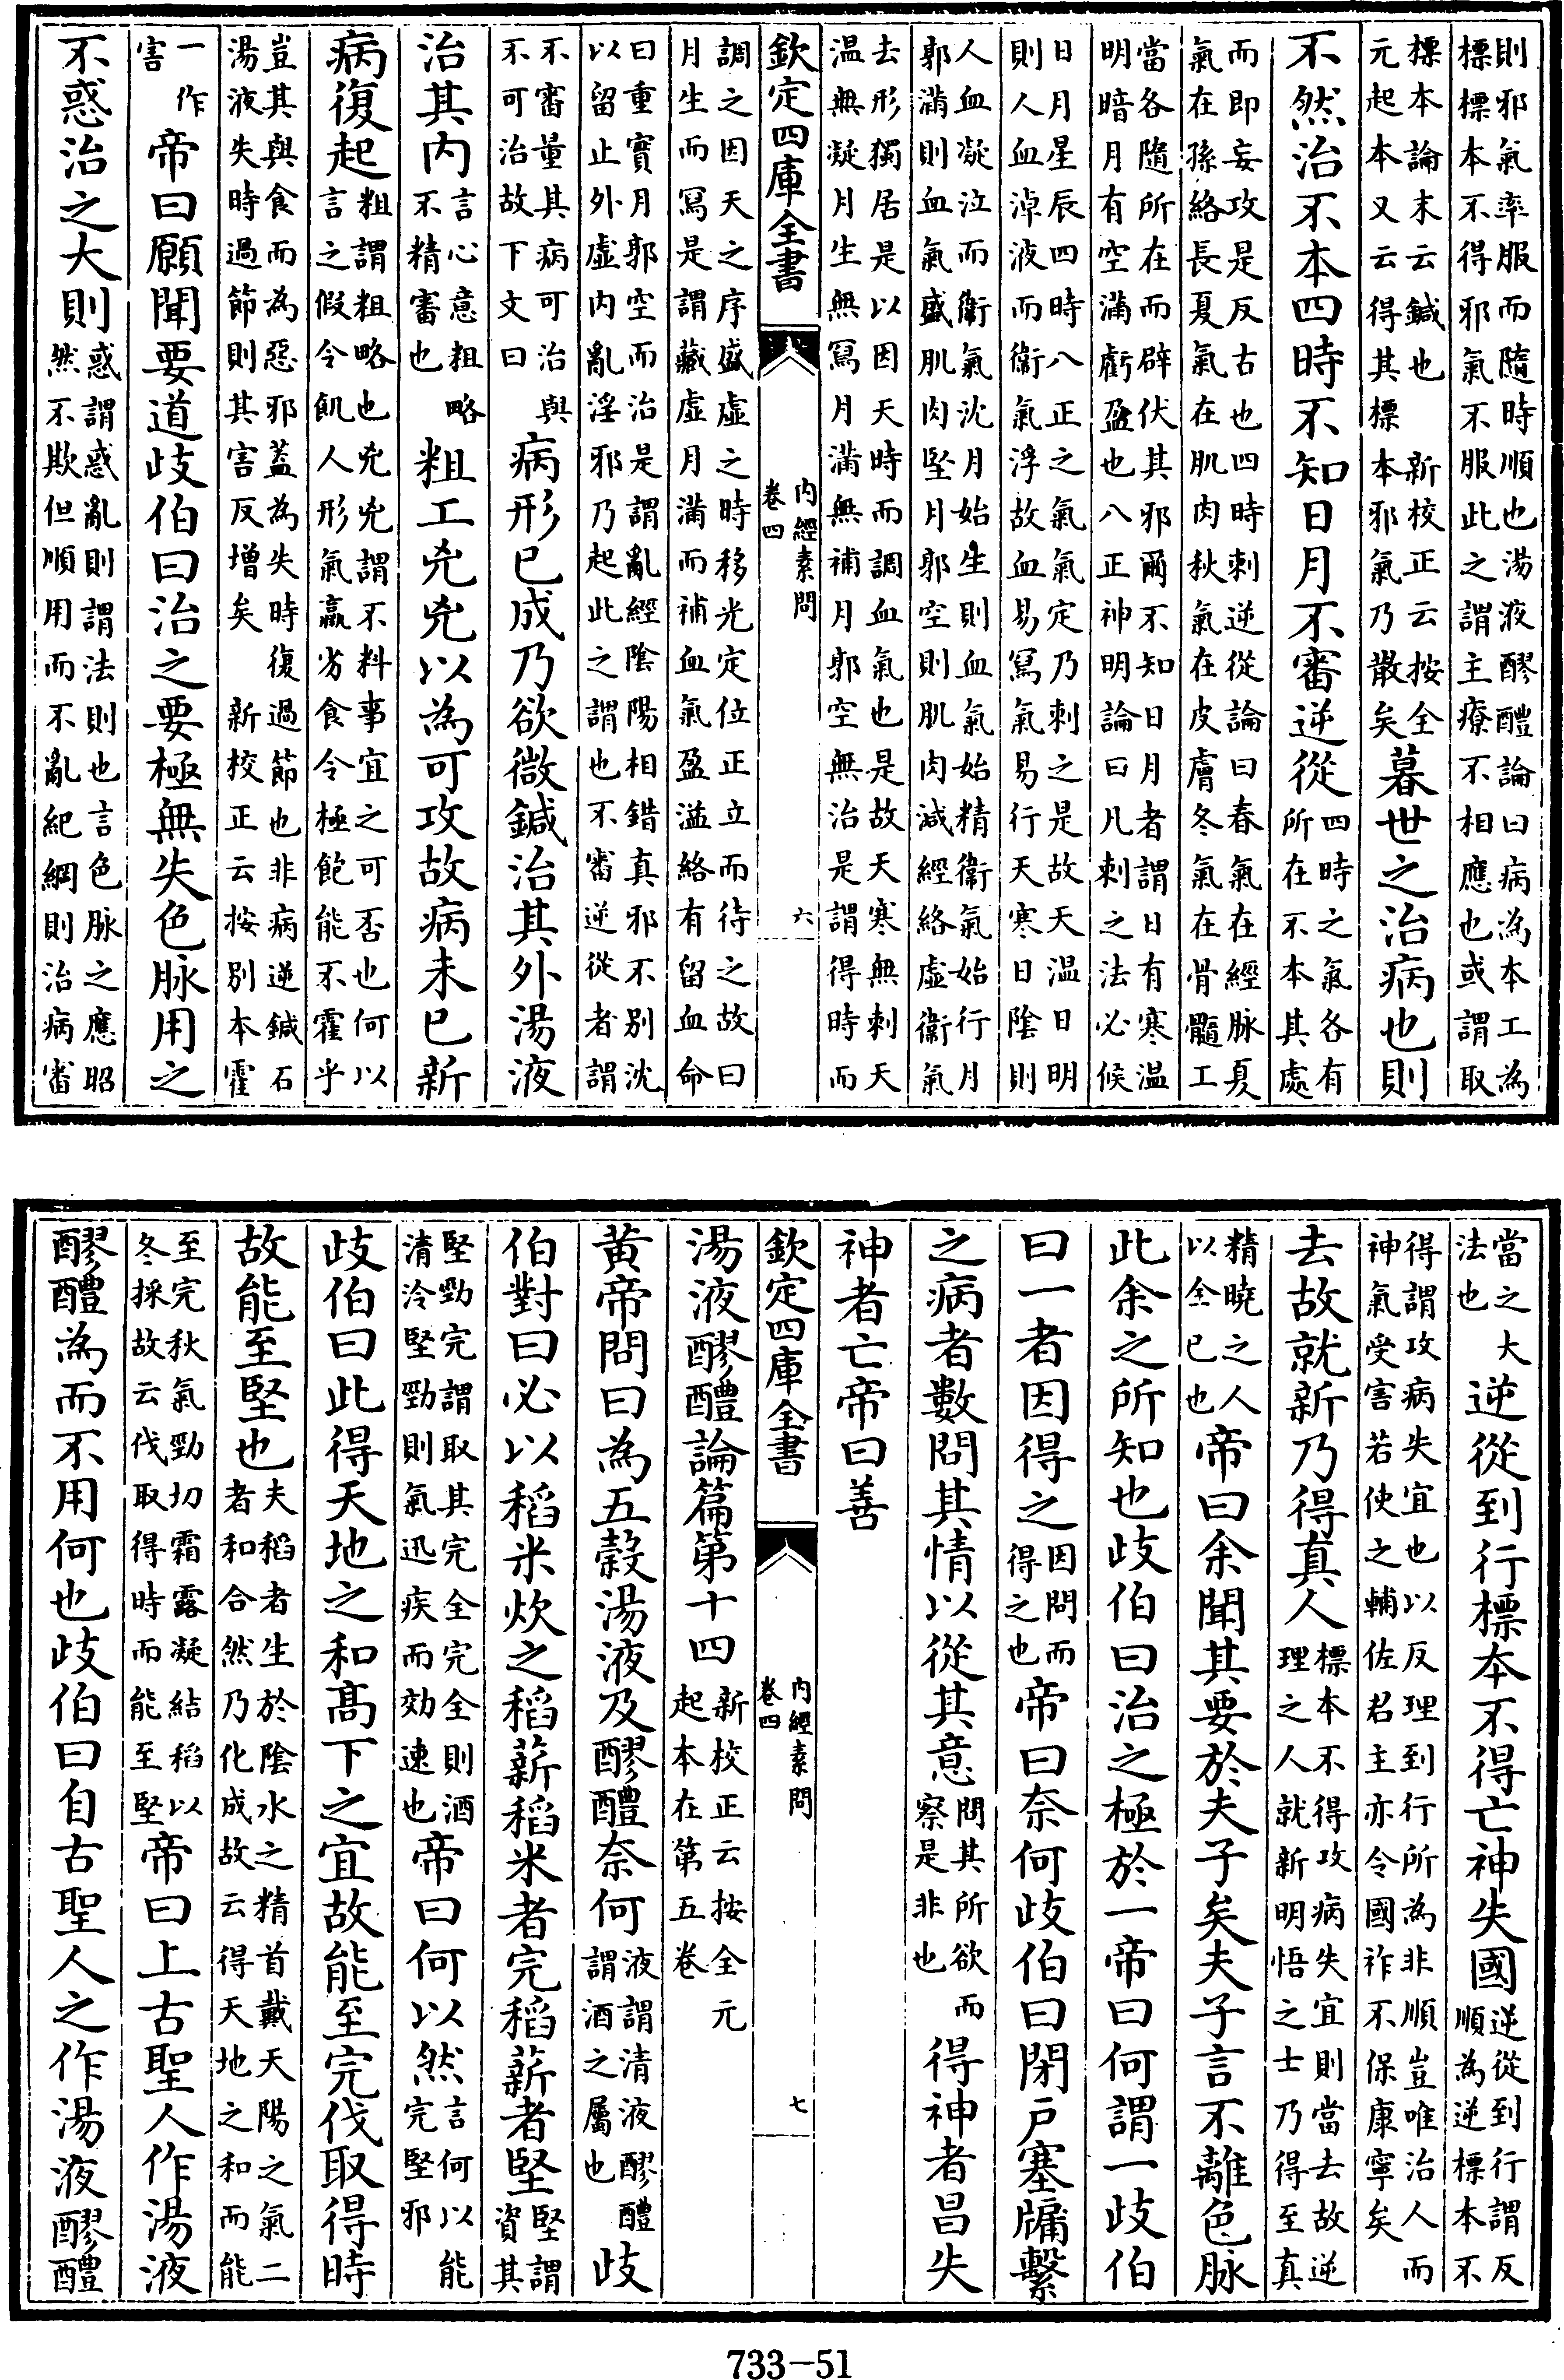 則邪氣率服而隨時順也湯液醪醴論曰病為本工為
標標本不得邪氣不服此之謂主療不相應也或謂取
標本論末云鍼也新校正云按全
元起本又云得其標本邪氣乃散矣暮世之治病也則
不然治不本四時不知日月不審逆從四時之氣各有
所在不本其處
而即妄攻是反古也四時刺逆從論曰春氣在經脉夏
氣在孫絡長夏氣在肌肉秋氣在皮膚冬氣在骨髓工
當各隨所在而辟伏其邪爾不知日月者謂日有寒温
明暗月有空滿虧盈也八正神明論曰凡刺之法必候
日月星辰四時八正之氣氣定乃刺之是故天温日明
則人血淖液而衞氣浮故血易寫氣易行天寒日陰則
人血凝泣而衞氣沈月始生則血氣始精衞氣始行月
郭滿則血氣盛肌肉堅月郭空則肌肉減經絡虛衞氣
去形獨居是以因天時而調血氣也是故天寒無刺天
温無凝月生無寫月滿無補月郭空無治是謂得時而
欽定四庫全書
内經素問
卷四
六
調之因天之序盛虛之時移光定位正立而待之故曰
月生而寫是謂藏虛月滿而補血氣盈溢絡有留血命
曰重實月郭空而治是謂亂經陰陽相錯真邪不別沈
以留止外虛内亂淫邪乃起此之謂也不審逆從者謂
不審量其病可治與
不可治故下文曰病形已成乃欲微鍼治其外湯液
治其内言心意粗略
不精審也粗工兇兇以為可攻故病未已新
病復起粗謂粗略也兇兇謂不料事宜之可否也何以
言之假令飢人形氣羸劣食令極飽能不霍乎
豈其與食而為惡邪蓋為失時復過節也非病逆鍼石
湯液失時過節則其害反增矣新校正云按別本霍
一作
害帝曰願聞要道歧伯曰治之要極無失色脉用之
不惑治之大則惑謂惑亂則謂法則也言色脉之應昭
然不欺但順用而不亂紀綱則治病審
當之大
法也逆從到行標本不得亡神失國逆從到行謂反
順為逆標本不
得謂攻病失宜也以反理到行所為非順豈唯治人而
神氣受害若使之輔佐君主亦令國祚不保康寧矣
去故就新乃得真人標本不得攻病失宜則當去故逆
理之人就新明悟之士乃得至真
精曉之人
以全已也帝曰余聞其要於夫子矣夫子言不離色脉
此余之所知也歧伯曰治之極於一帝曰何謂一歧伯
曰一者因得之因問而
得之也帝曰奈何歧伯曰閉戶塞牖繫
之病者數問其情以從其意問其所欲而
察是非也得神者昌失
神者亡帝曰善
欽定四庫全書
内經素問
卷四
七
湯液醪醴論篇第十四新校正云按全元
起本在第五卷
黄帝問曰為五穀湯液及醪醴奈何液謂清液醪醴
謂酒之屬也歧
伯對曰必以稻米炊之稻薪稻米者完稻薪者堅堅謂
資其
堅勁完謂取其完全完全則酒
清泠堅勁則氣迅疾而効速也帝曰何以然言何以能
完堅邪
歧伯曰此得天地之和髙下之宜故能至完伐取得時
故能至堅也夫稻者生於陰水之精首戴天陽之氣二
者和合然乃化成故云得天地之和而能
至完秋氣勁切霜露凝結稻以
冬採故云伐取得時而能至堅帝曰上古聖人作湯液
醪醴為而不用何也歧伯曰自古聖人之作湯液醪醴
733-51